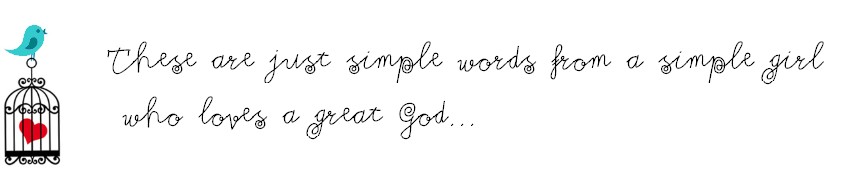 These are just simple words from a simple girl
who loves a great God...